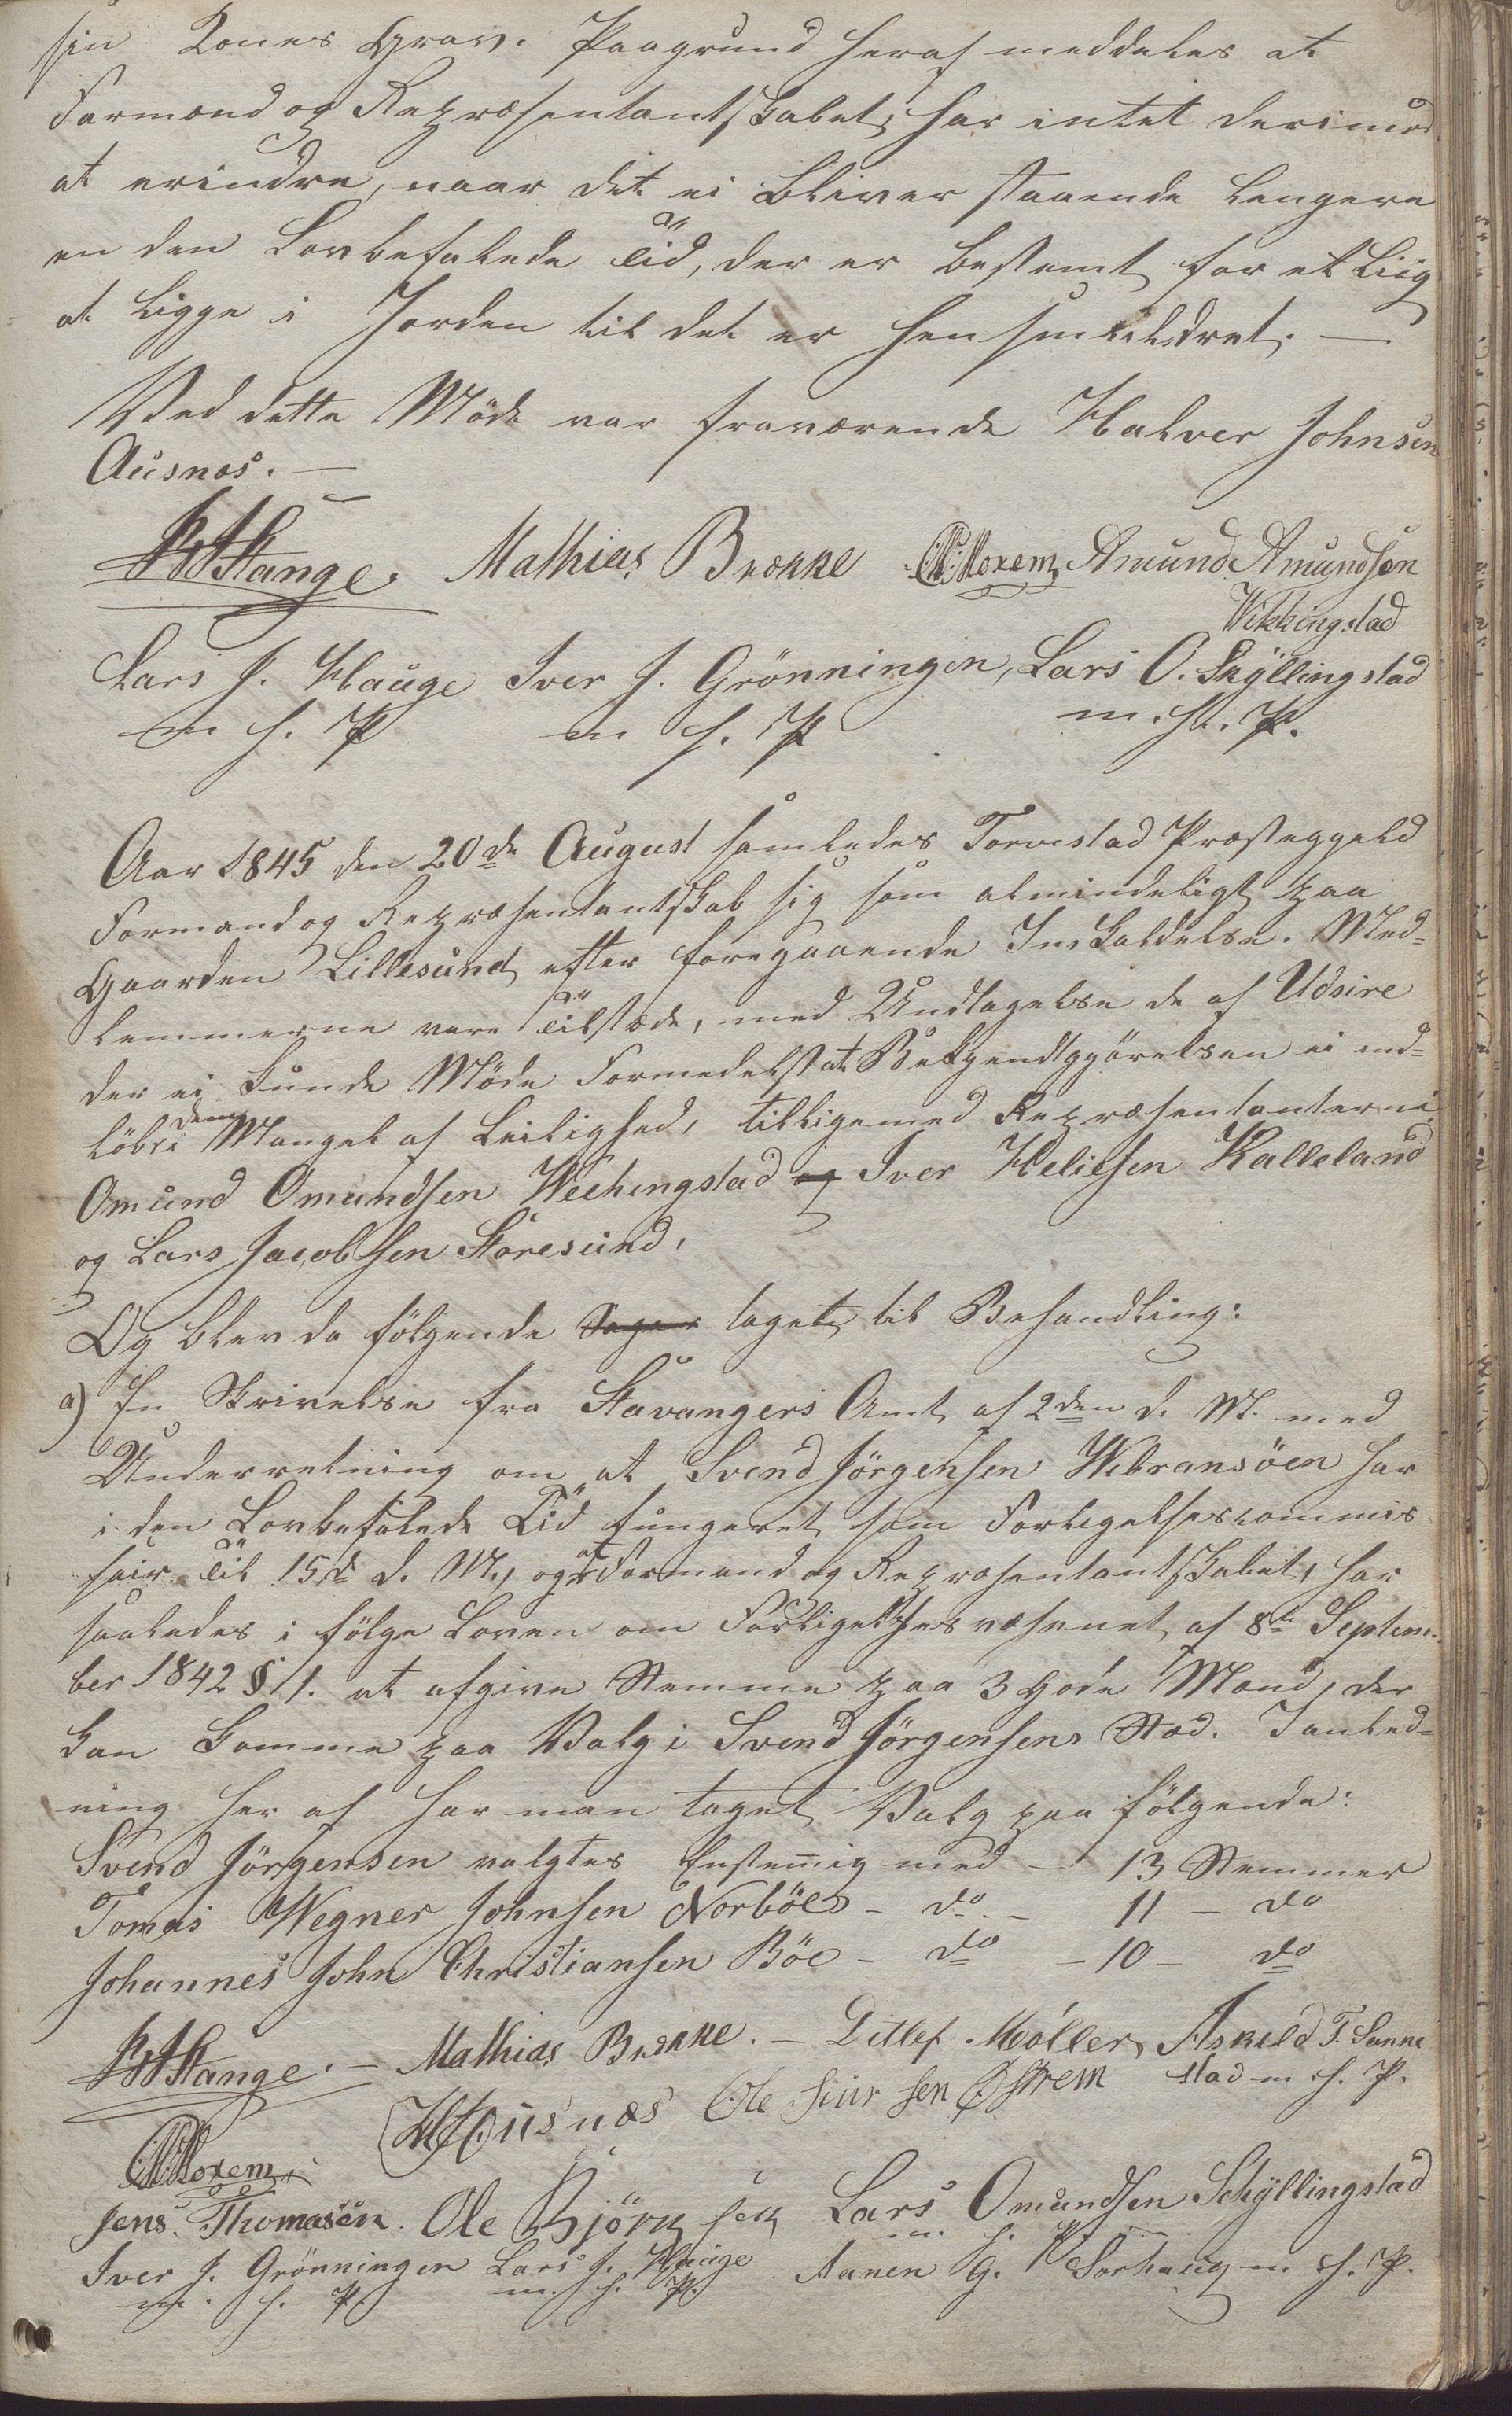 sin Kones Grav. Paagrund heraf meddeles at
Formand og Repræsentantskabet, har intet derimod
at erindre, naar det ei bliver staaende længere
en den Lovbefalede Tid, der er bestemt for et Liig
at ligge i Jorden til det er hensmuldret. —
Ved dette Möde var fraværende Halver Johnsen
Ausnæs. —
Stange. Mathias Brekke Amund Amundsen
Wikkingstad
Lars J. Hauge Iver J. Grönningen, Lars O. Skÿllingstad
m h. P m h. P m. h. P.
Aar 1845 den 20de August samledes Torvestad Præstegjeld
Formand og Repræsentantskab sig som almindeligt paa
Gaarden Lillesund, efter foregaaende Indkaldelse. Med=
lemmerne vare Tilstæde, med Undtagelse de af Udsire
der ei kunde Möde Formedelst at Bekjendtgjörelsen ei ind=
löb i dem Mangel af Leilighed, tilligemed Repræsentanterne
Omund Omundsen Weehengstad og Iver Heliesen Kalleland
og Lars Jacobsen Storesund,
Og blev da fölgende Sager taget til Behandling:
a) En Skrivelse fra Stavangers Amt af 2den d. M. med
Underretning om at Svend Jörgensen Wibransöen har
i den Lovbefalede Tid fungeret som Forligelsescommis
sair Til 15de d. M., og at Formand og Repræsentantskabet, har
saaledes i fölge Loven om Forligelsesvæsenet af 8de Septem=
ber 1842 § 1. at afgive Stemme paa 3 gode Mænd, der
kan komme paa Valg i Svend Jörgensens Stæd. I anled=
ning her af har man taget Valg paa fölgende:
Svend Jörgensen valgtes Enstemig med — 13 Stemmer
Tomas Wegner Johnsen Norböe – do – 11 – do
Johannes John Christiansen Böe – do – 10 – do
Stange. — Mathias Brekke. — Ditlef Möller, Askild T. Sunne
stad m. h. P.
Ousnæs Ole Siursen Østrem
Jens. Thomasen. Ole Björnsen Lars Omundsen Schÿllingstad
m. h. P.
Iver J. Grönningen Lars J. Hauge Aanen G. Sörhaug m. h. P.
m. h. P. m. h. P.